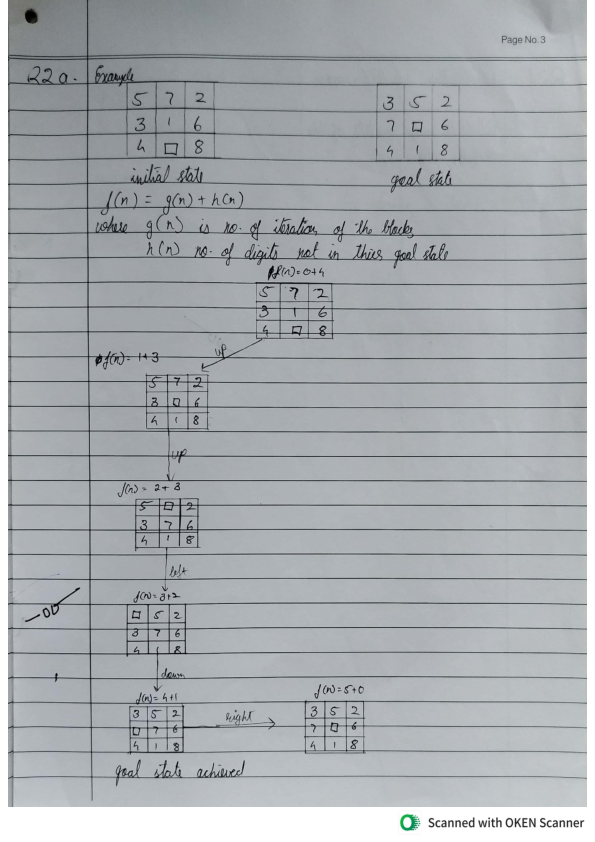 Page No. 3
22a. Example
5 7 2
3 1 6
4 □ 8
initial state
3 5 2
7 □ 6
4 1 8
goal state
f(n) = g(n) + h(n)
where g(n) is no. of iteration of the blocks
h(n) no. of digits not in thier goal state
f(n)=0+4
5 7 2
3 1 6
4 □ 8
up
f(n)= 1+3
5 7 2
3 □ 6
4 1 8
up
f(n) = 2+3
5 □ 2
3 7 6
4 1 8
left
f(n)=3+2
□ 5 2
3 7 6
4 1 8
down
f(n)=4+1
3 5 2
□ 7 6
4 1 8
right
f(n)=5+0
3 5 2
7 □ 6
4 1 8
goal state achieved
Scanned with OKEN Scanner